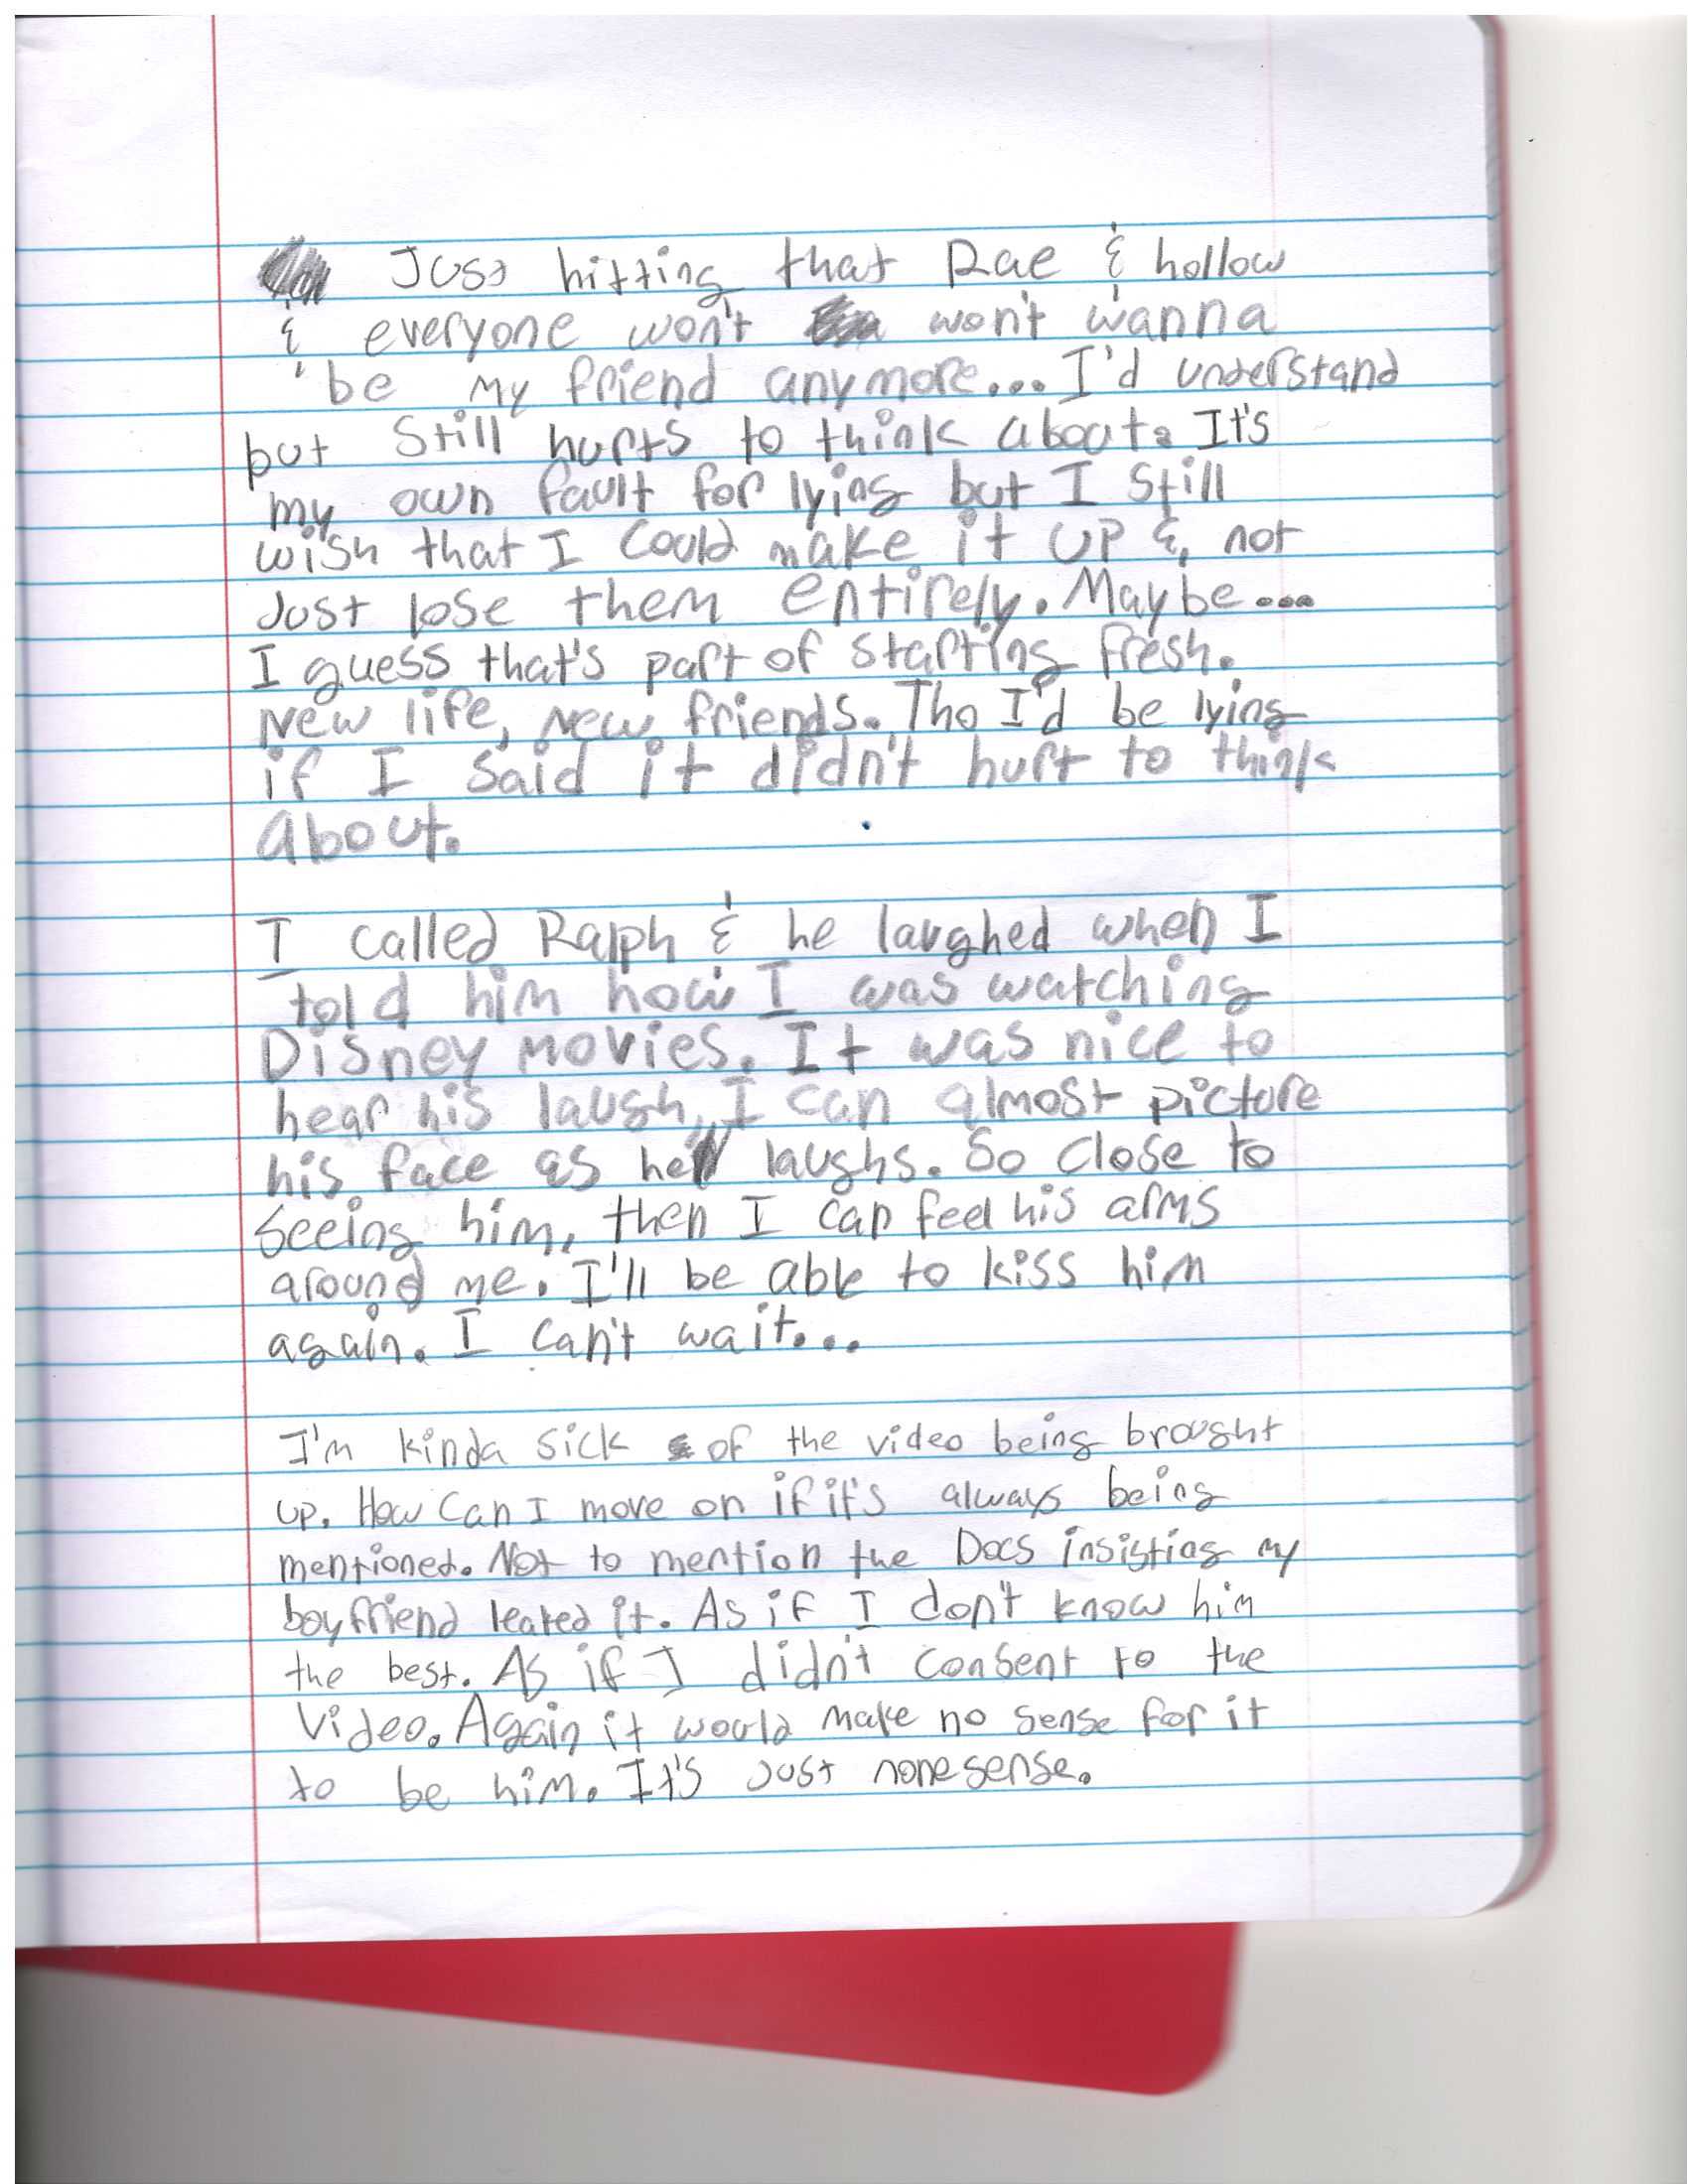 Just hitting that Rae & hollow
& everyone won't won't wanna
be my friend anymore... I'd understand
but still hurts to think about. It's
my own fault for lying but I still
wish that I could make it up &, not
Just lose them entirely. Maybe...
I guess that's part of starting fresh.
New life, new friends. Tho I'd be lying
if I said it didn't hurt to think
about.
I called Ralph & he laughed when I
told him how I was watching
Disney movies. It was nice to
hear his laugh, I can almost picture
his face as he laughs. So close to
seeing him, then I can feel his arms
around me. I'll be able to kiss him
again. I can't wait...
I'm kinda sick of the video being brought
up. How can I move on if it's always being
mentioned. Not to mention the Docs insisting my
boyfriend leaked it. As if I don't know him
the best. As if I didn't consent to the
video. Again it would make no sense for it
to be him. It's Just nonesense.